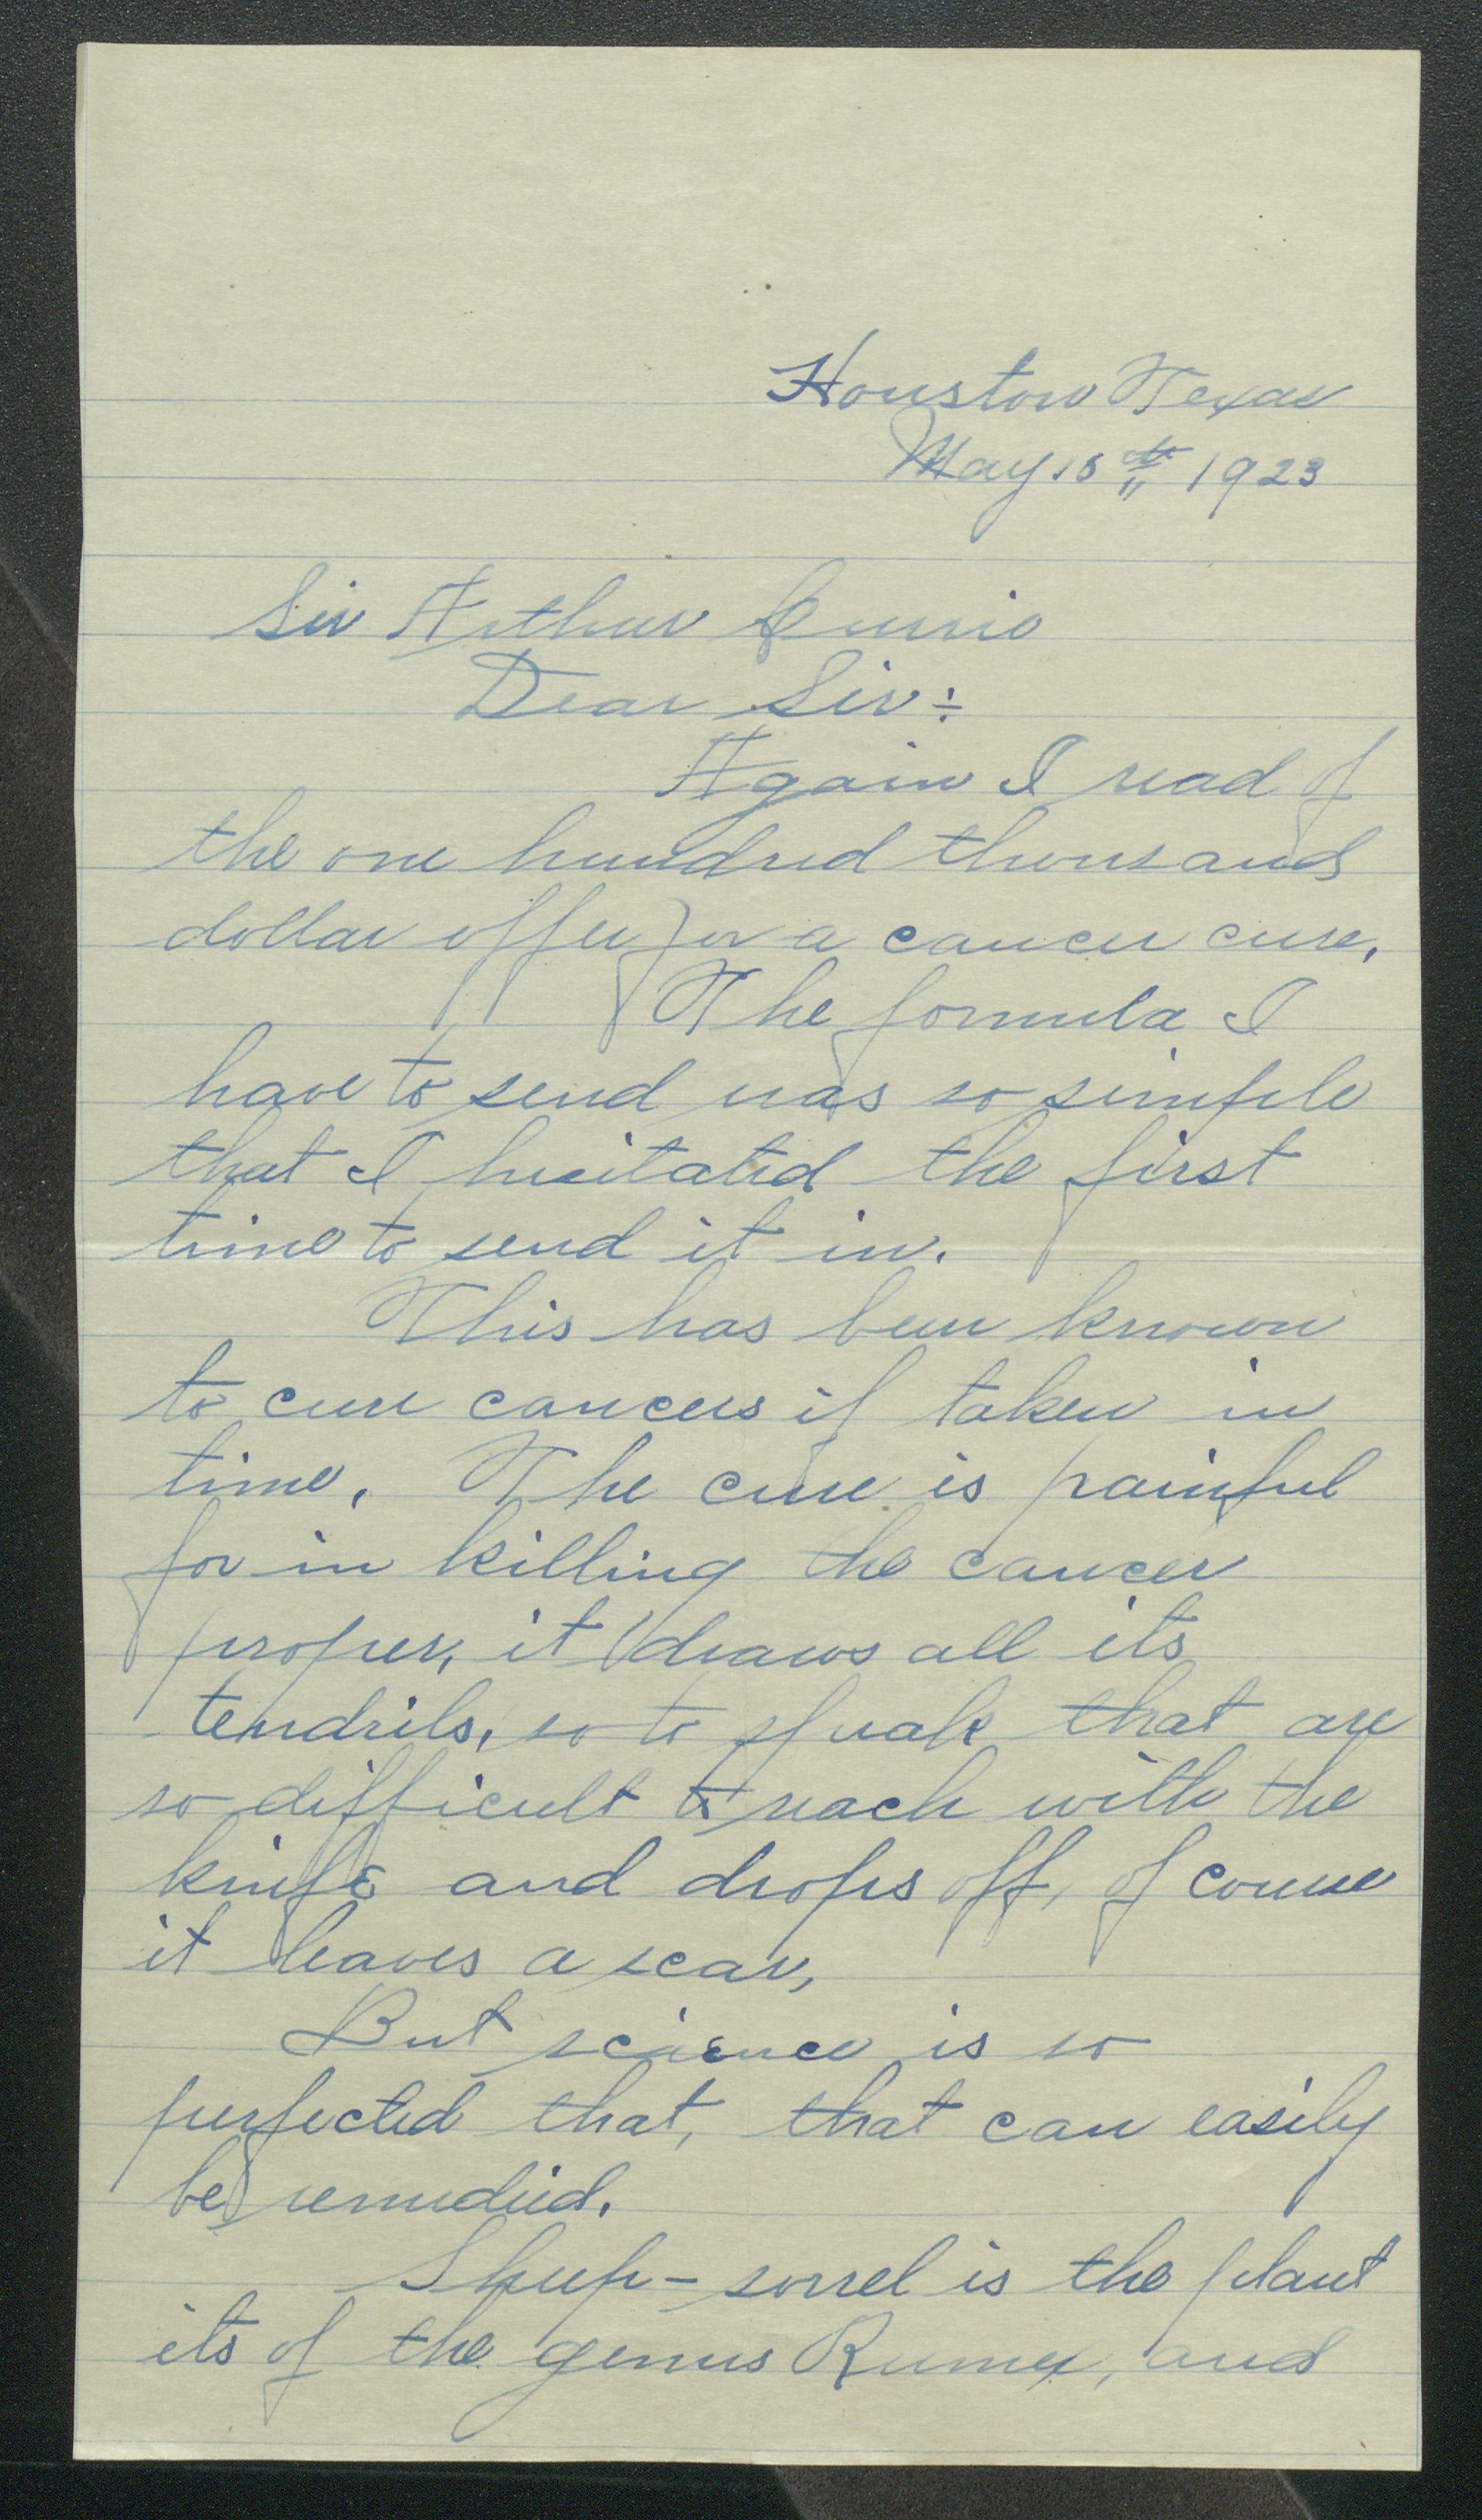 Houston Texas
May 15th 1923
Sir Arthur Currie
Dear Sir:
Again I read of
the one hundred thousand
dollar offer for a cancer cure.
The formula I
have to send was so simple
that I hesitated the first
time to send it in.
This has been known
to cure cancers if taken in
time. The cure is painful
for in killing the cancer
proper, it draws all its
tendrils, so to speak that are
so difficult to reach with the
knife and drops off, of course
it leaves a scar,
But science is so
perfected that, that can easily
be remedied.
Sheep-sorrel is the plant
its of the genus Rumex, and